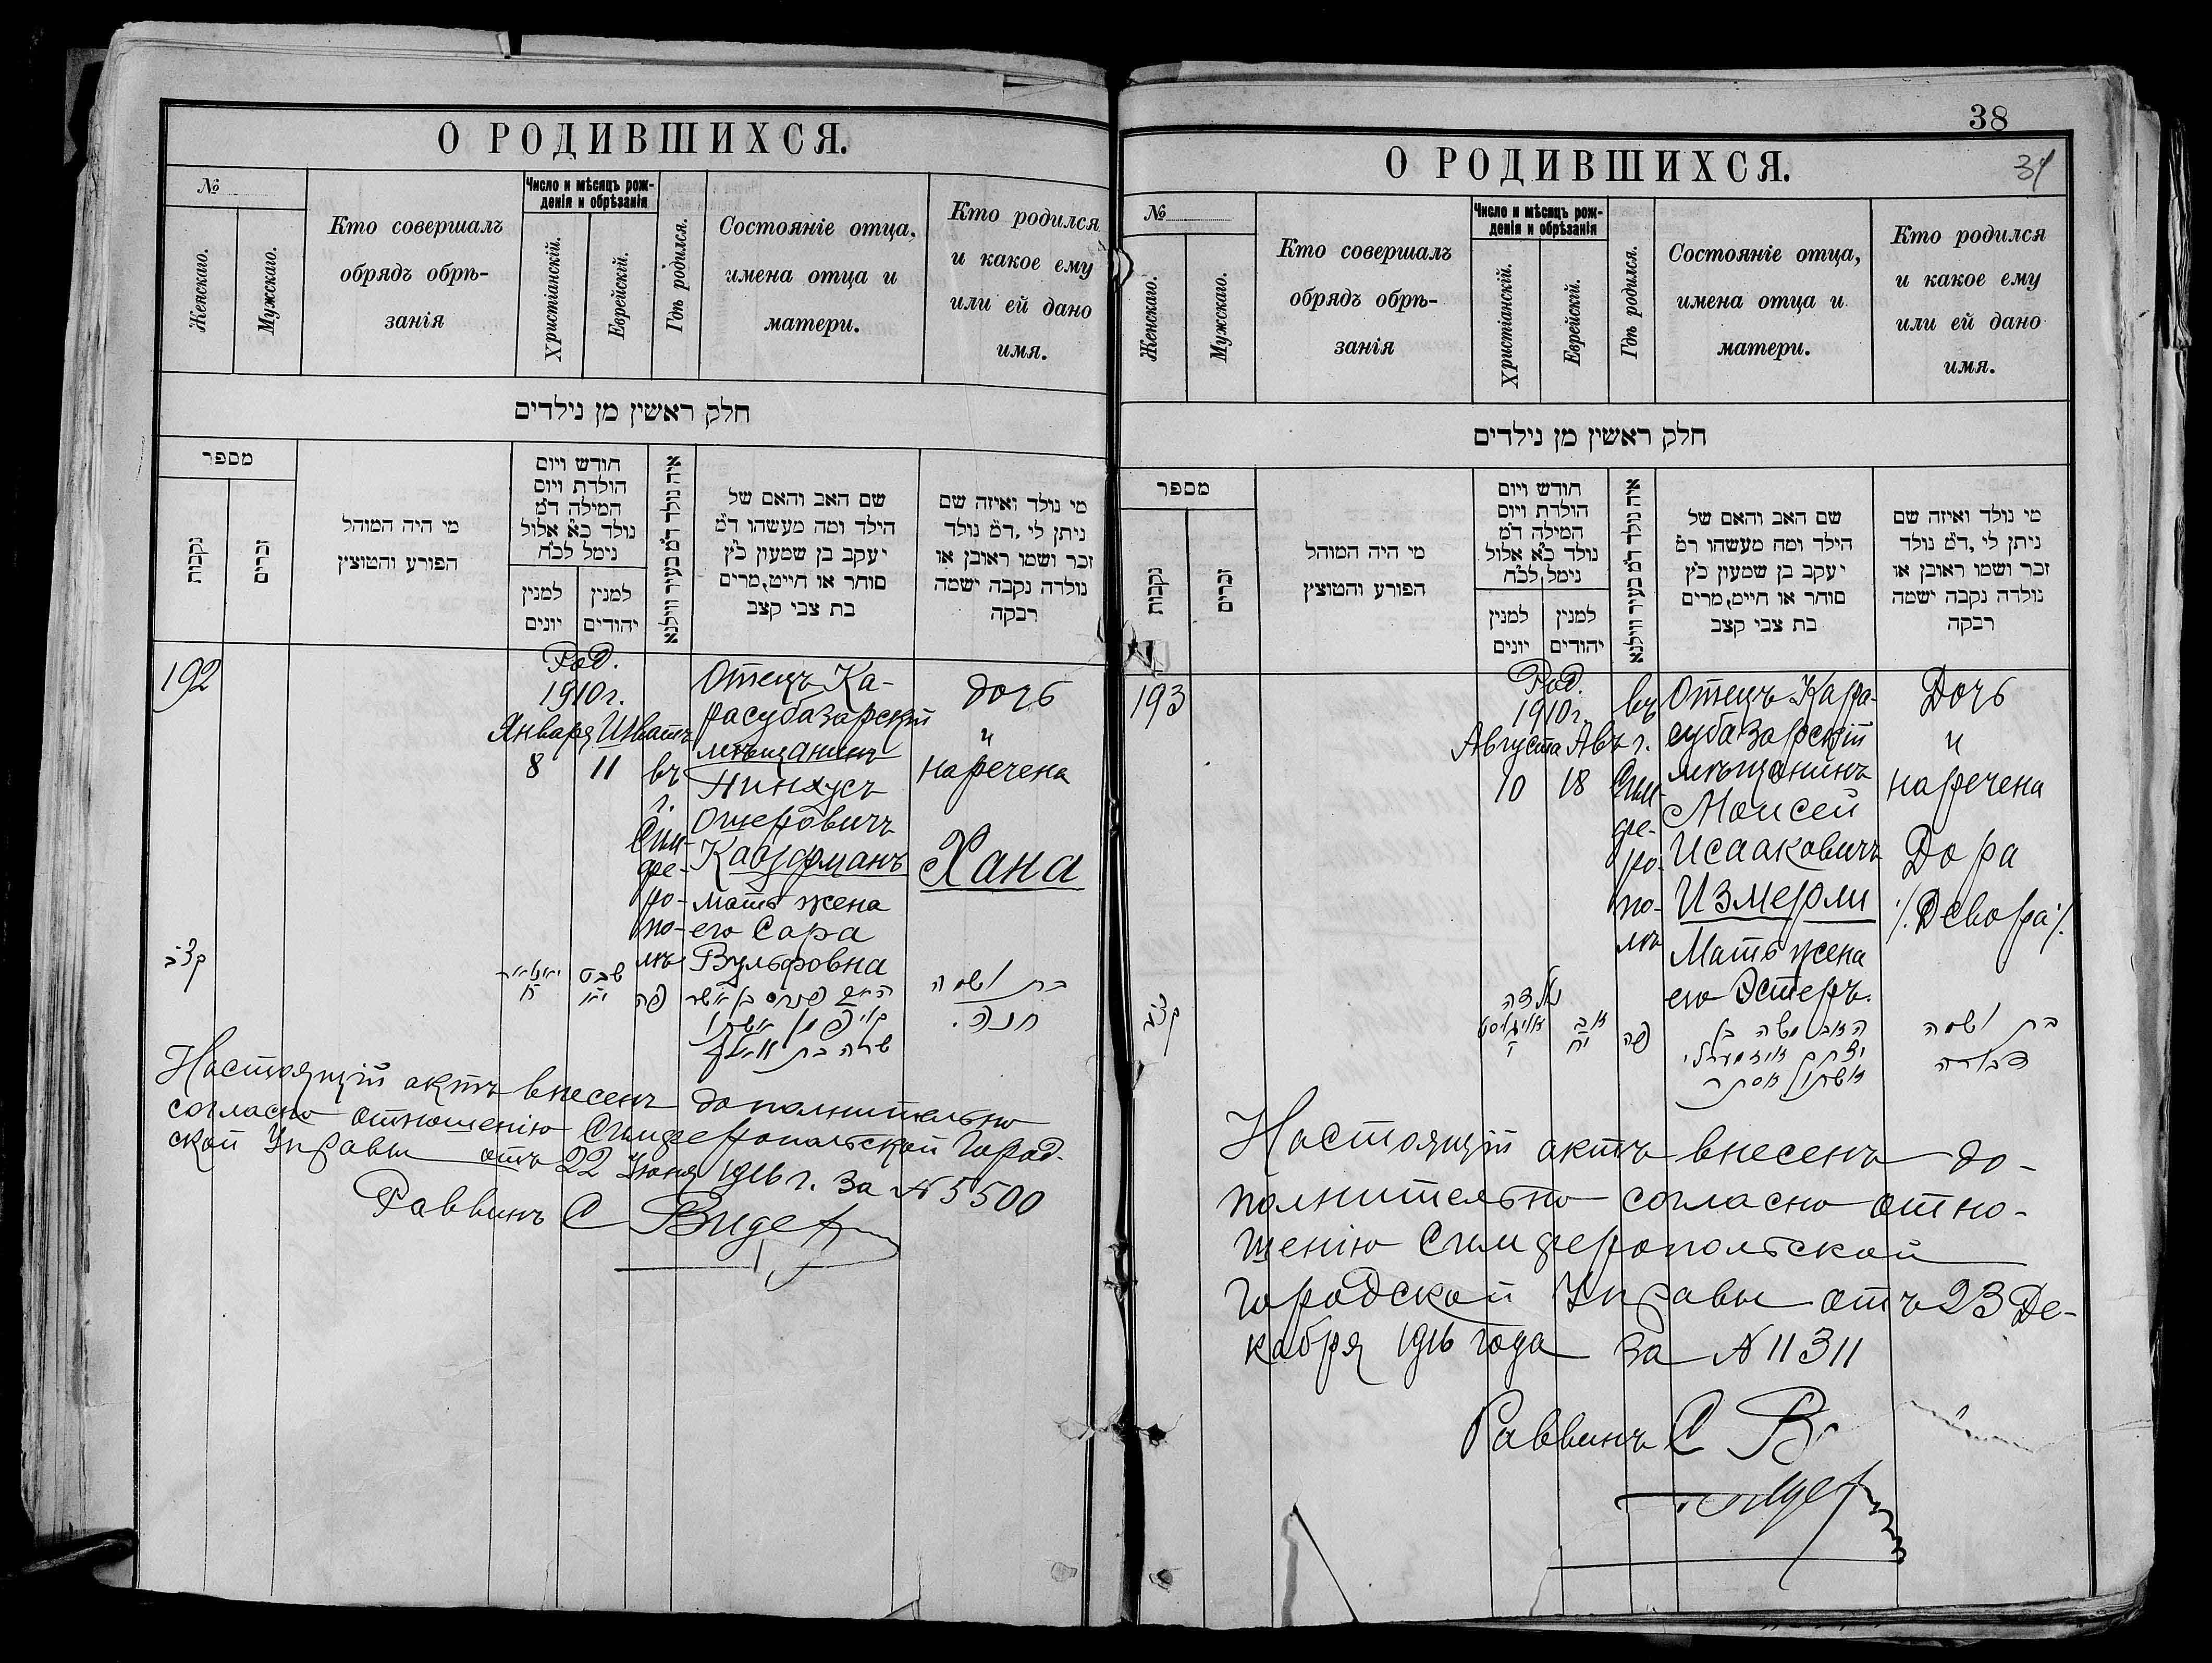 О РОДИВШИХСЯ.
№
Женскаго.
Мужскаго.
Кто совершалъ
обрядъ обрѣ-
занія
Число и мѣсяцъ рож-
денія и обрѣзанія
Христіанскій.
Еврейскій.
Гдѣ родился.
Состояніе отца,
имена отца и
матери.
Кто родился
и какое ему
или ей дано
имя.
חלק ראשין מן נילדים
מספר
נקבות
זכרים
מי היה המוהל
הפורע והמוצץ
חודש ויום
הולדת ויום
המילה ד״מ
נולד כ״א אלול
נימל לכ״ח
למנין
יונים
למנין
יהודים
איה נולד ד״מ בעיר ווילנא
שם האב והאם של
הילד ומה מעשהו ד״מ
יעקב בן שמעון כ״ץ
סוחר או חייט, מרים
בת צבי קצב
מי נולד ואיזה שם
ניתן לי, ד״מ נולד
זכר ושמו ראובן או
נולדה נקבה ישמה
רבקה
192
Род.
1910 г.
Января Шватъ
8 11
въ
г.
Сим-
фе-
ро-
по-
лѣ
Отецъ Ка-
расубазарскій
мѣщанинъ
Пинхусъ
Ошеровичъ
Кауфманъ
Мать жена
его Сара
Вульфовна
Дочь
и
наречена
Хана
קצב
שבט
פה
האב פנחס בן אשר
קויפמן אשתו
בת ושמה
חנה.
Настоящій актъ внесенъ дополнительно
согласно отношенію Симферопольской Город-
ской Управы отъ 22 Іюня 1916 г. за № 5500
Раввинъ С
38
О РОДИВШИХСЯ.
№
Женскаго.
Мужскаго.
Кто совершалъ
обрядъ обрѣ-
занія
Число и мѣсяцъ рож-
денія и обрѣзанія
Христіанскій.
Еврейскій.
Гдѣ родился.
Состояніе отца,
имена отца и
матери.
Кто родился
и какое ему
или ей дано
имя.
חלק ראשין מן נילדים
מספר
נקבות
זכרים
מי היה המוהל
הפורע והמוצץ
חודש ויום
הולדת ויום
המילה ד״מ
נולד כ״א אלול
נימל לכ״ח
למנין
יונים
למנין
יהודים
איה נולד ד״מ בעיר ווילנא
שם האב והאם של
הילד ומה מעשהו ד״מ
יעקב בן שמעון כ״ץ
סוחר או חייט, מרים
בת צבי קצב
מי נולד ואיזה שם
ניתן לי, ד״מ נולד
זכר ושמו ראובן או
נולדה נקבה ישמה
רבקה
193
Род.
1910 г.
Августа Авъ
10 18
въ
г.
Сим-
фе-
ро-
по-
лѣ
Отецъ Кара-
субазарскій
мѣщанинъ
Моисей
Исааковичъ
Измерли
Мать жена
его Эстеръ.
Дочь
и
наречена
Дора
/Девора/
קצג
נולדה
אויגוסט
י
אב
יח
פה
האב משה בן
יצחק איזמערלי
אשתו אסתר
בת ושמה
דבורה
Настоящій актъ внесенъ до-
полнительно согласно отно-
шенію Симферопольской
Городской Управы отъ 23 Де-
кабря 1916 года за № 11311
Раввинъ С